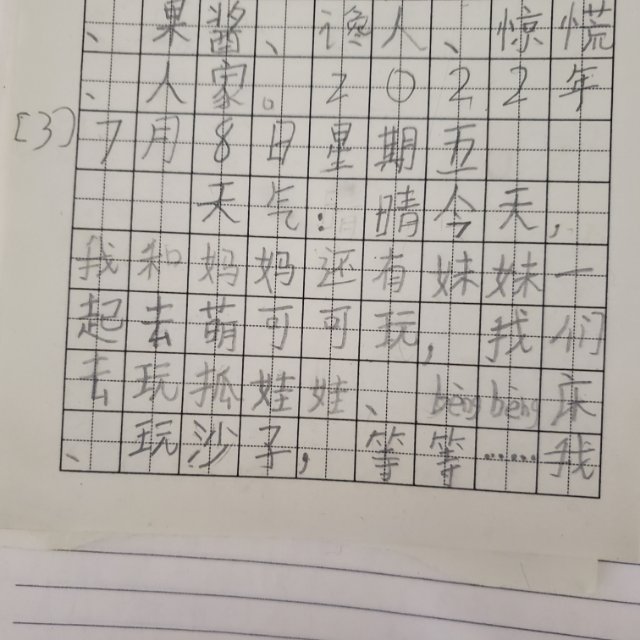 、果酱、谗人、惊慌
、人家。2022年
[3] 7月8日星期五
天气：晴今天，
我和妈妈还有妹妹一
起去萌可可玩，我们
去玩抓娃娃、bèngbèng床
、玩沙子，等等……我